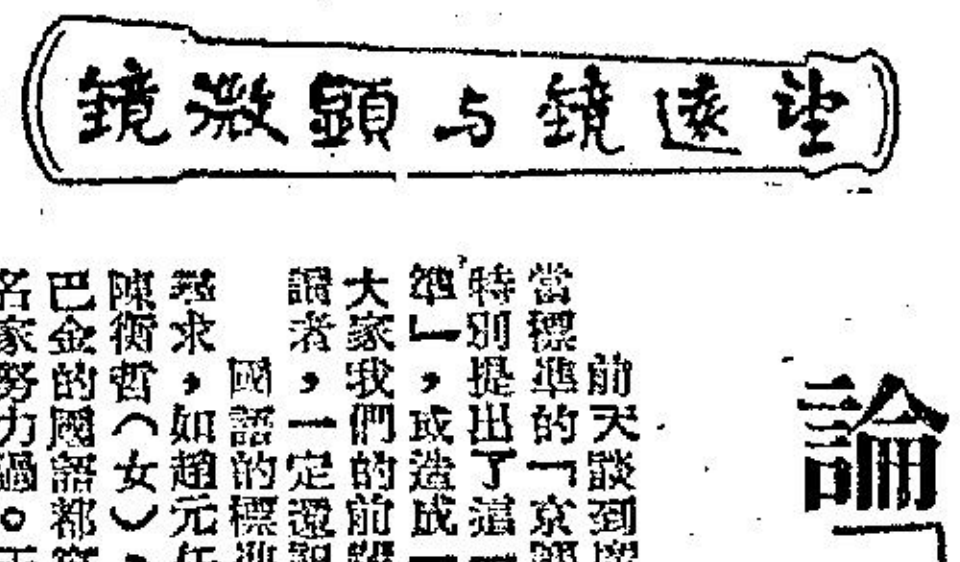 望遠鏡与顕微鏡
論「
前天談到
當標準的「京
特別提出了這一
準」,或造成一
大家我們的前
讀者,一定還
國語的標準
尋求,如趙元任
陳衡哲(女),
巴金的國語都
名家努力過。